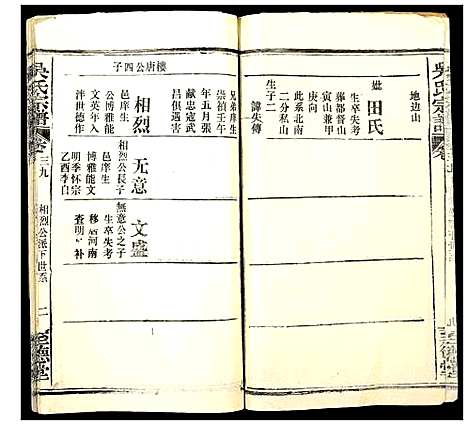 吳氏宗譜
地边山
妣田氏
生卒失考
葬都督山
寅山兼甲
庚向
此系南房
二分私山
生子二
譚失傳
兄弟庠生
崇禎壬午
年五月張
献忠寇武
昌公遇害
樓唐公四子
相烈
邑庠生
公博雅能
文英年入
泮世德作
相烈公長子
无意
邑庠生
博雅能文
明季怀宗
乙酉李自
無意公之子
文盛
生卒失考
移居河南
查明补
吳氏宗譜
卷三九
相烈公派下世系
二
至德堂